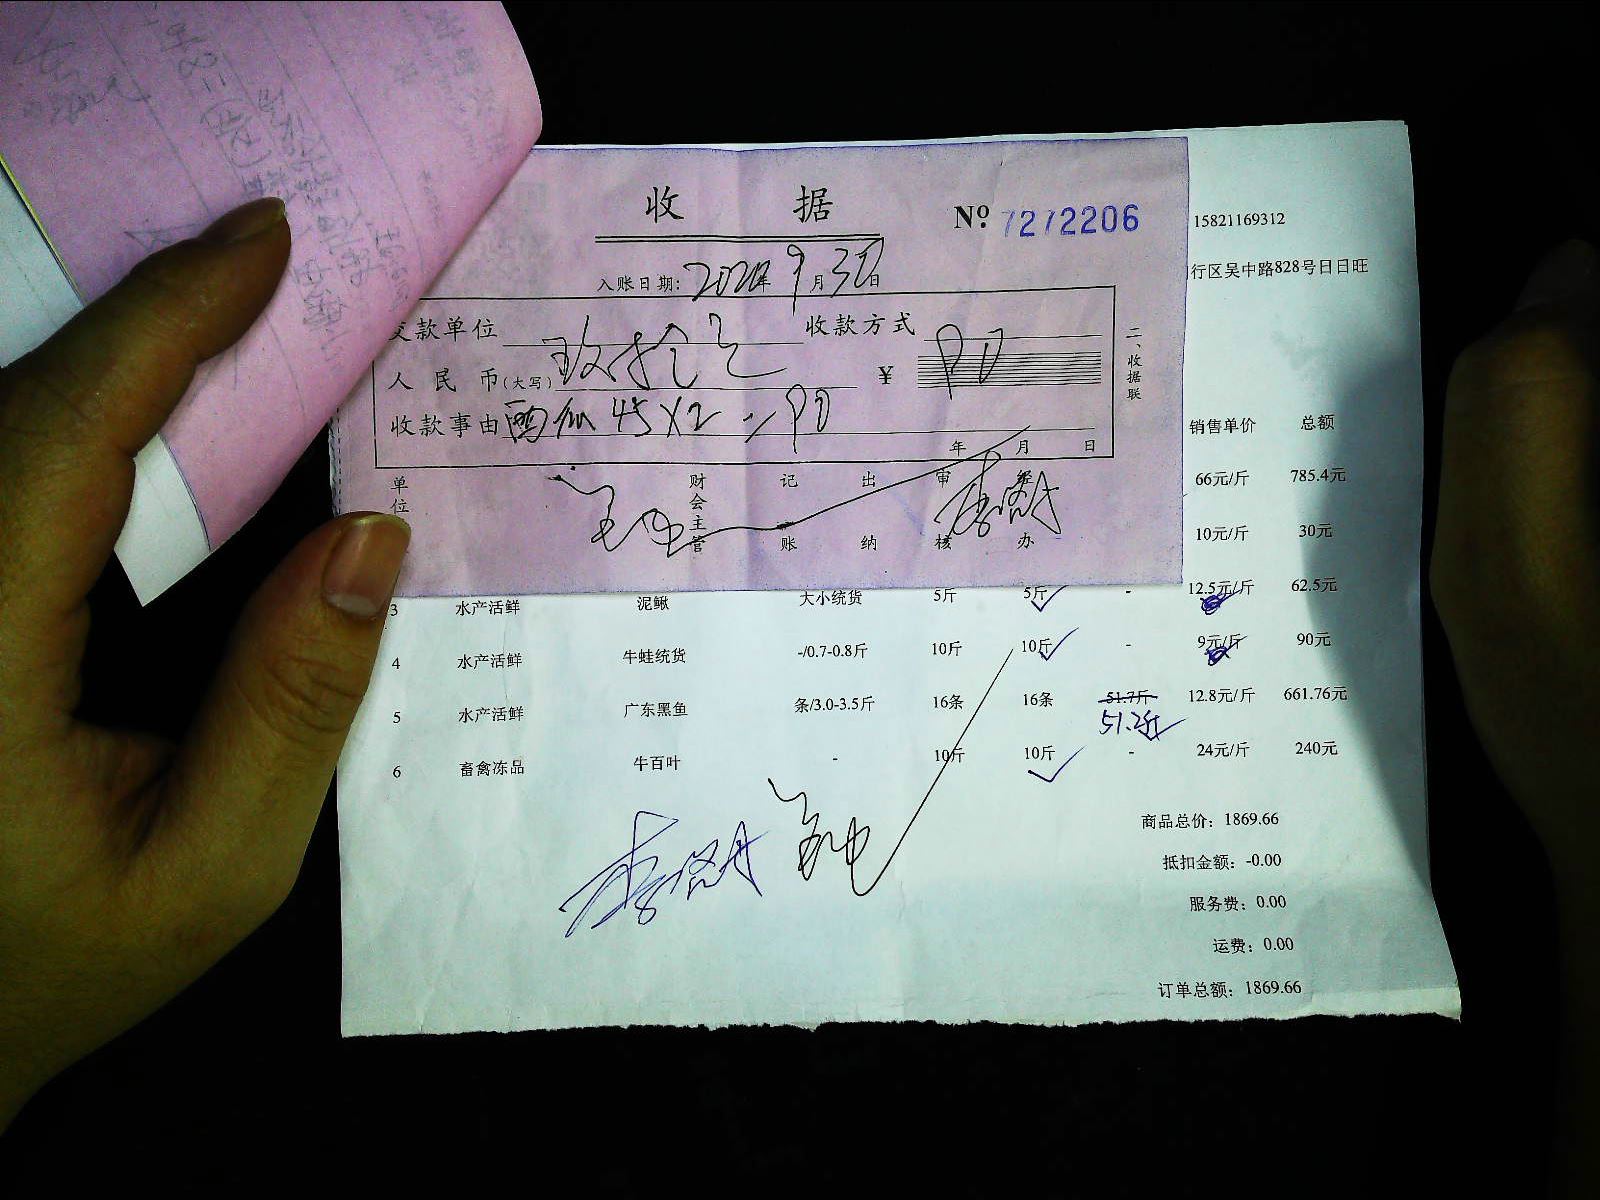 收 据
№ 7272206
15821169312
行区吴中路828号日日旺
入账日期: 年 9月30日
交款单位 收款方式
人民币(大写) 玖拾元 ¥ 90
收款事由 西瓜 45X2=90
年 月 日
二、收据联
单位 财会主管 记账 出纳 审核 经办
销售单价 总额
66元/斤 785.4元
10元/斤 30元
3 水产活鲜 泥鳅 大小统货 5斤 5斤 - 12.5元/斤 62.5元
4 水产活鲜 牛蛙统货 -/0.7-0.8斤 10斤 10斤 - 9元/斤 90元
5 水产活鲜 广东黑鱼 条/3.0-3.5斤 16条 16条 51.7斤 12.8元/斤 661.76元
51.2斤
6 畜禽冻品 牛百叶 - 10斤 10斤 - 24元/斤 240元
商品总价: 1869.66
抵扣金额: -0.00
服务费: 0.00
运费: 0.00
订单总额: 1869.66